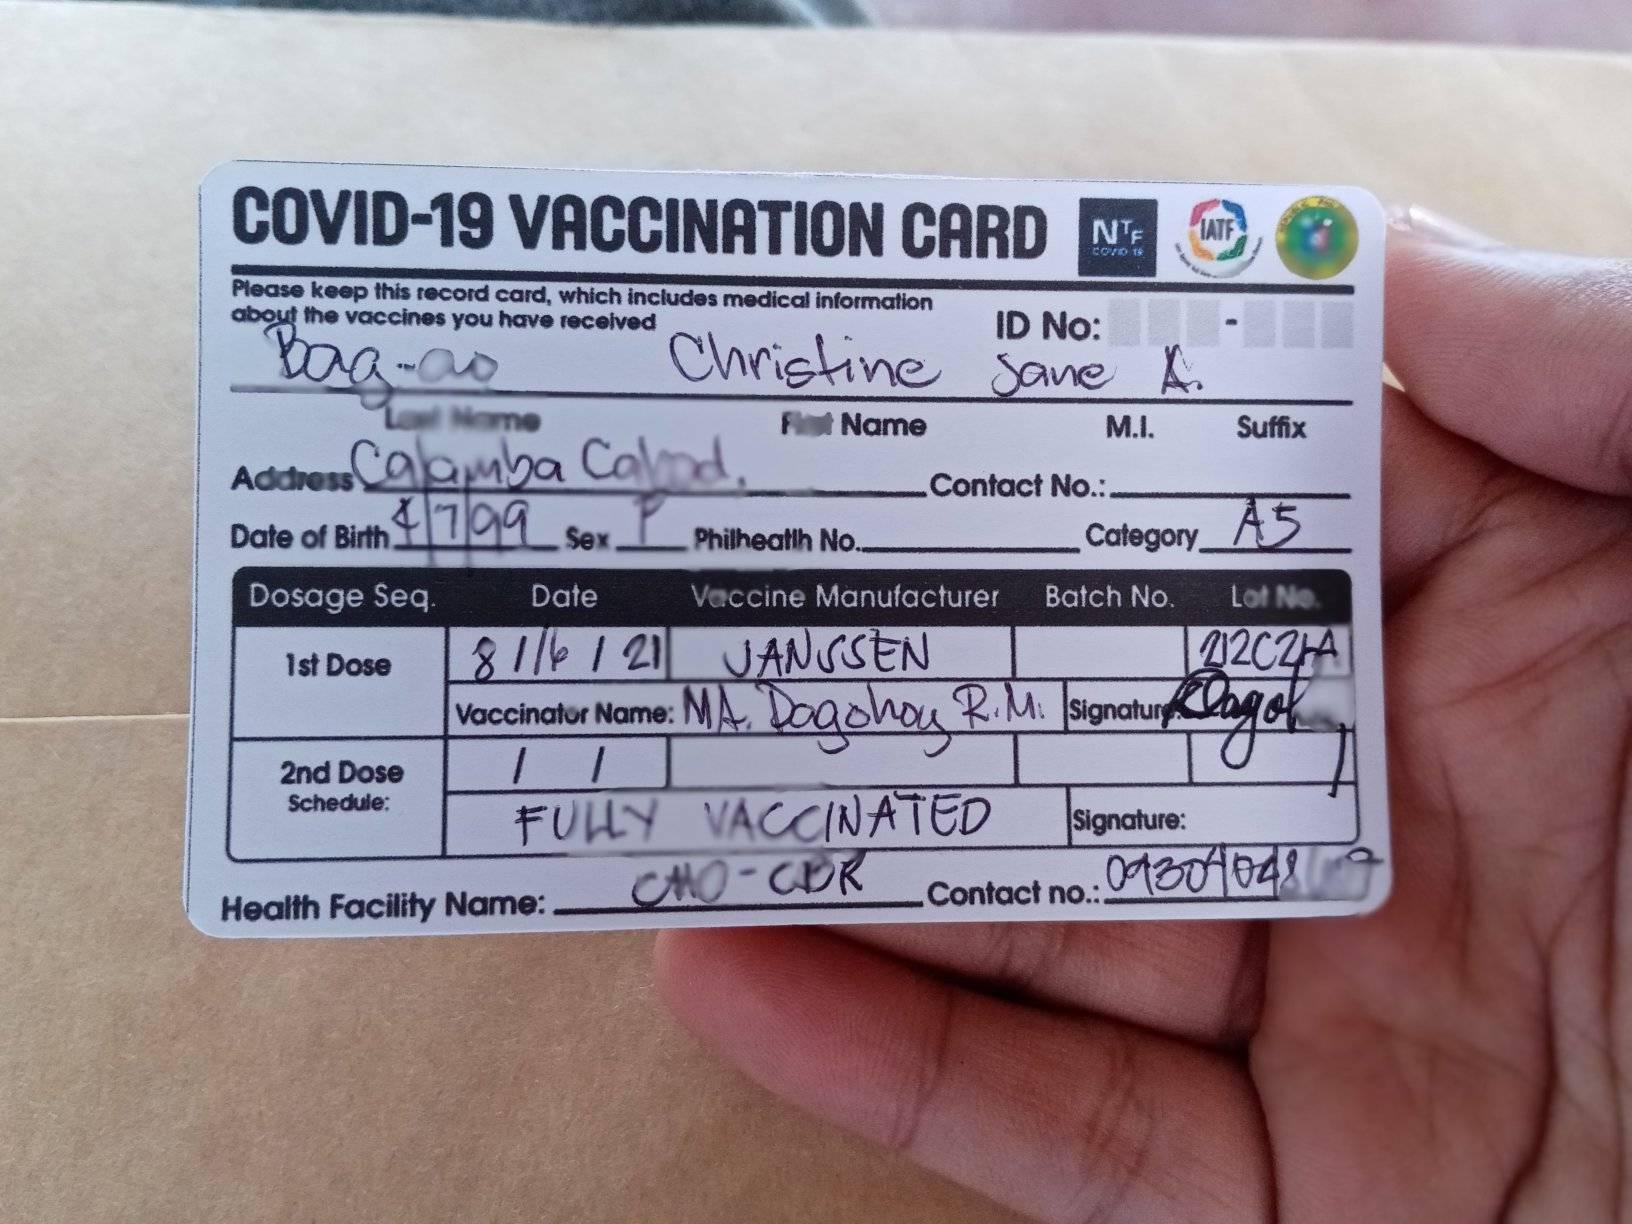 COVID-19 VACCINATION CARD
NTF
COVID 19
IATF
Please keep this record card, which includes medical information
about the vaccines you have received
ID No: -
Bag-ao Christine Jane A.
Last Name First Name M.I. Suffix
Address Calamba Contact No.:
Date of Birth /7/99 Sex Philhealth No. Category A5
Dosage Seq. Date Vaccine Manufacturer Batch No. Lot No.
1st Dose 8 / 6 / 21 JANSSEN
Vaccinator Name: MA. Dagohoy R.M. Signature:
2nd Dose / /
Schedule: FULLY VACCINATED Signature:
Health Facility Name: CHO-CDR Contact no.: